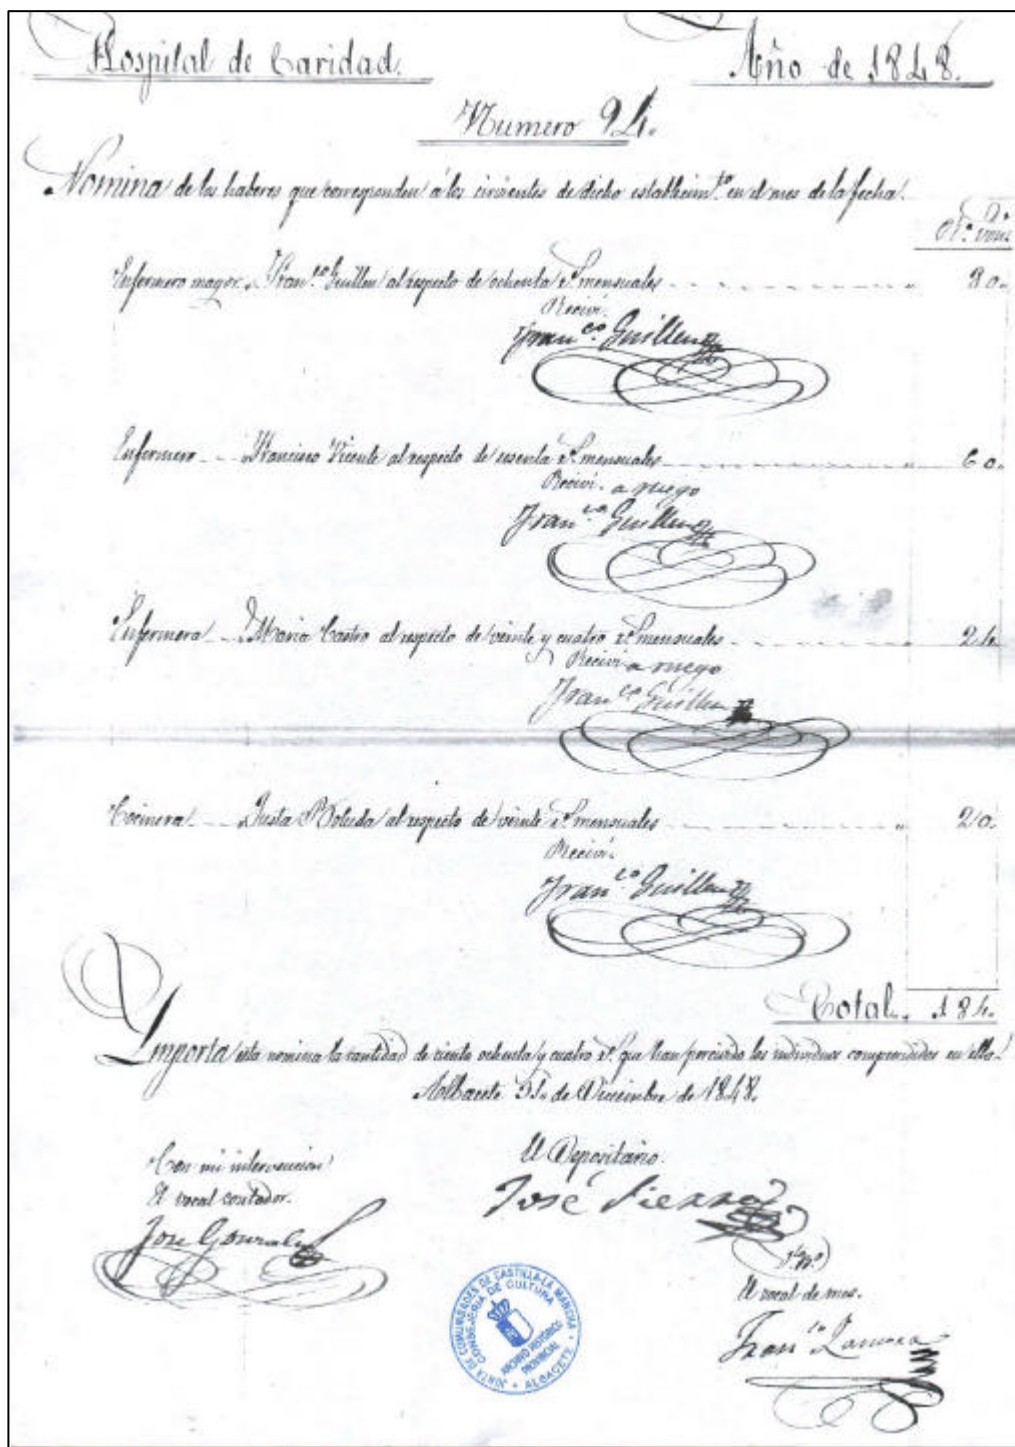 Hospital de Caridad.
Año de 1848.
Numero 94.
Nomina de los haberes que corresponden á los sirvientes de dicho establecim.to en el mes de la fecha.
R.s vellon
Enfermero mayor. Fran.co Guillen al respecto de ochenta r.s mensuales 80.
Recivi.
Fran.co Guillen
Enfermero Francisco Vicente al respecto de sesenta r.s mensuales 60.
Recivi. a ruego
Fran.co Guillen
Enfermera Maria Castro al respecto de veinte y cuatro r.s mensuales 24.
Recivi a ruego
Fran.co Guillen
Cocinera Justa Boluda al respecto de veinte r.s mensuales 20.
Recivi.
Fran.co Guillen
Total. 184.
Importa esta nomina la cantidad de ciento ochenta y cuatro r.s que han percivido los individuos comprendidos en ella.
Albacete 31. de Diciembre de 1848.
Con mi intervencion
El vocal contador.
Jose Gonzalez
El Depositario.
José Sierra
V.o B.o
El vocal de mes.
Fran.co Zamora
JUNTA DE COMUNIDADES DE CASTILLA-LA MANCHA
CONSEJERIA DE CULTURA
ARCHIVO HISTORICO
PROVINCIAL
ALBACETE